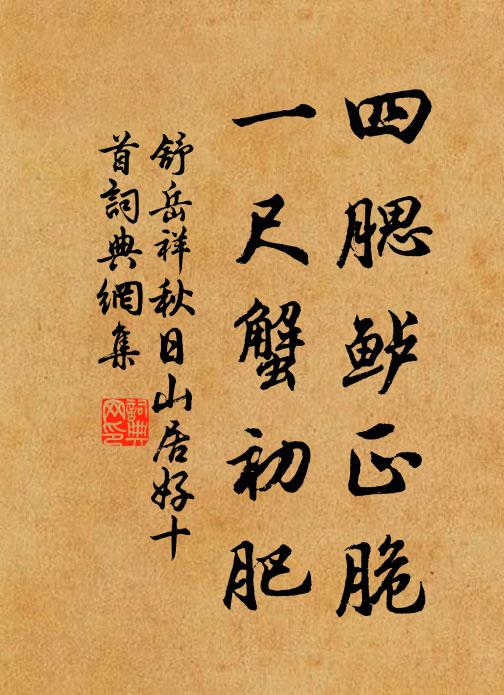 四腮鲈正脆
一尺蟹初肥
舒岳祥秋日山居好十
首詞典網集
詞典
网印